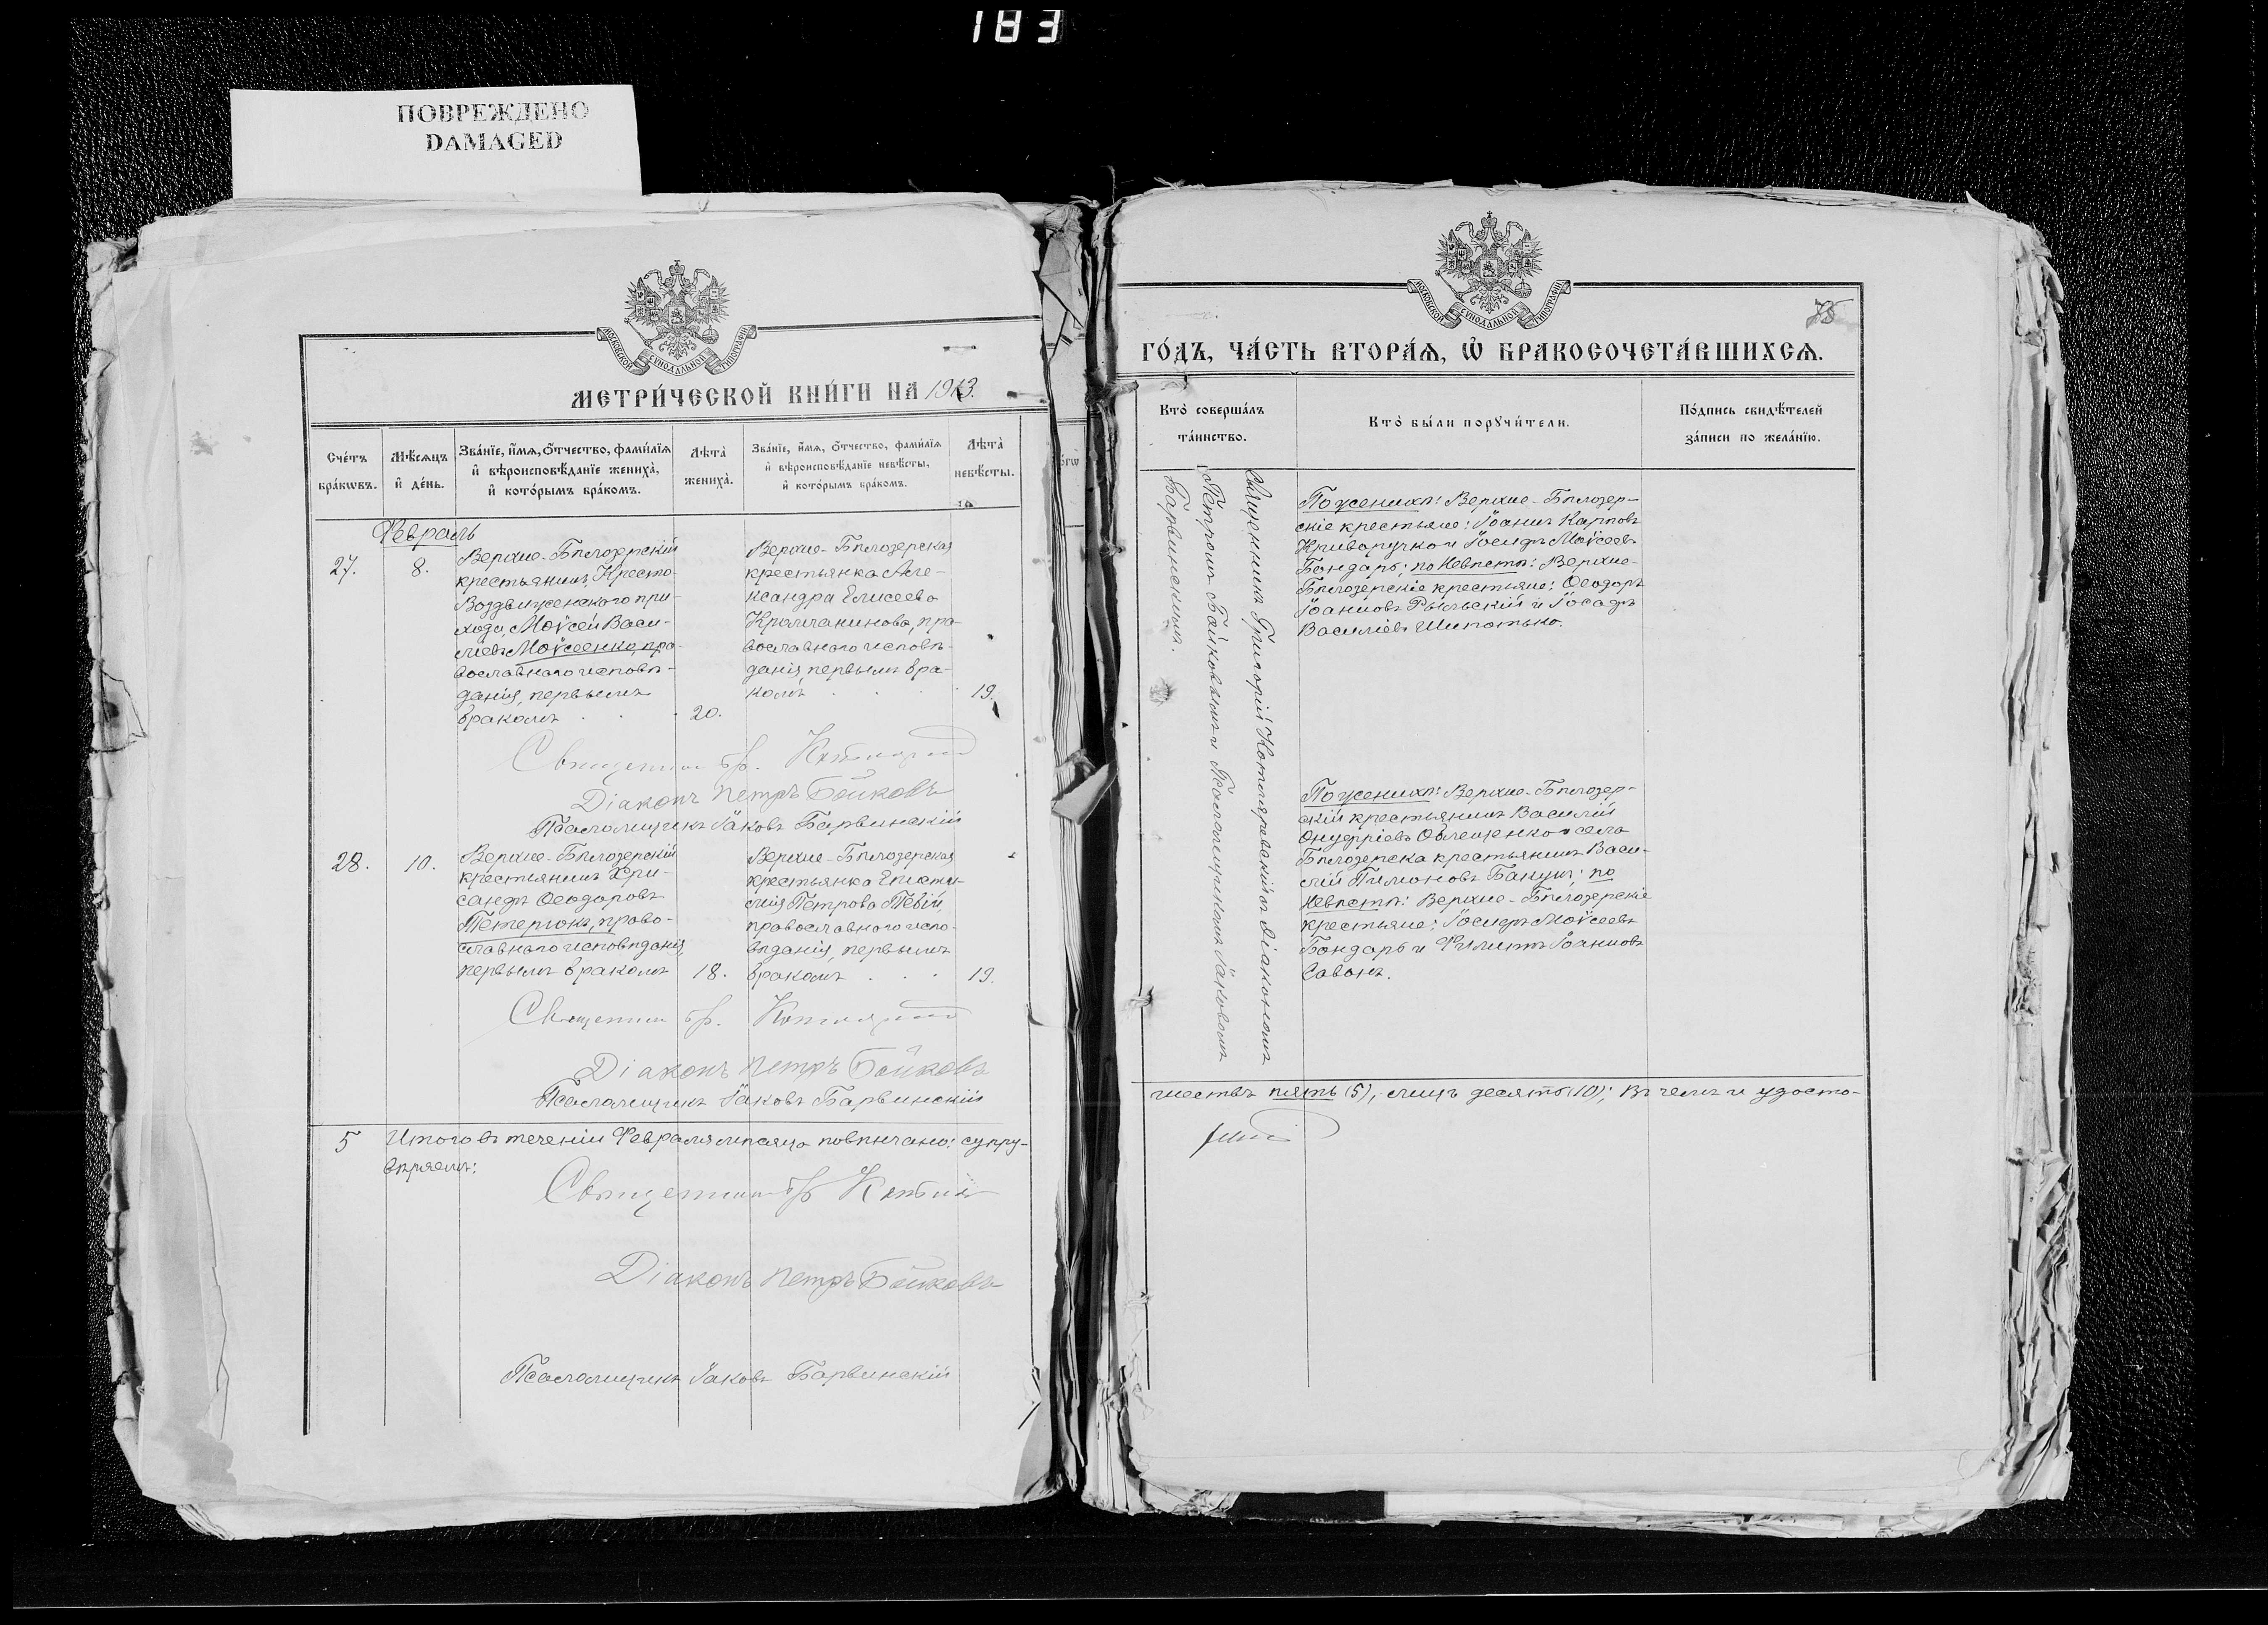 183
ПОВРЕЖДЕНО
DAMAGED
МОСКОВСКОЙ СѴНОДАЛЬНОЙ ТИПОГРАФІИ
МЕТРИ́ЧЕСКОЙ КНИ́ГИ НА 1913.
Сче́тъ бра́кѡвъ.
Мѣ́сѧцъ и҆ де́нь.
Зва́нїе, и҆́мѧ, о҆́тчество, фами́лїѧ
и҆ вѣроисповѣ́данїе жениха̀,
и҆ кото́рымъ бра́комъ.
Лѣта̀ жениха̀.
Зва́нїе, и҆́мѧ, о҆́тчество, фами́лїѧ
и҆ вѣроисповѣ́данїе невѣ́сты,
и҆ кото́рымъ бра́комъ.
Лѣта̀ невѣ́сты.
Февраль
27.
8.
Верхне-Бѣлозерскій
крестьянинъ, Кресто-
Воздвиженскаго при-
хода, Моѵсей Васи-
ліевъ Моѵсеенко, пра-
вославнаго исповѣ-
данія, первымъ
бракомъ
20.
Верхне-Бѣлозерская
крестьянка Але-
ксандра Елисеева
православнаго исповѣ-
данія, первымъ бра-
комъ
19.
Священник Гр.
Діаконъ Петръ Бойковъ
Псаломщикъ Іаковъ Барвинскій
28.
10.
Верхне-Бѣлозерскій
крестьянинъ Хри-
санфъ Ѳеодоровъ
Петерюка, право-
славнаго исповѣданія,
первымъ бракомъ
18.
Верхне-Бѣлозерская
крестьянка Еписти-
мія Петрова
православнаго испо-
вѣданія, первымъ
бракомъ
19.
Священник Гр.
Діаконъ Петръ Бойковъ
Псаломщикъ Іаковъ Барвинскій
5
Итого въ теченіи Февраля мѣсяца повѣнчано: супру-
вѣряемъ:
Священник Гр
Діаконъ Петръ Бойковъ
Псаломщикъ Іаковъ Барвинскій
МОСКОВСКОЙ СѴНОДАЛЬНОЙ ТИПОГРАФІИ
75
ГО́ДЪ, ЧА́СТЬ ВТОРА́Ѧ, Ѡ҆ БРАКОСОЧЕТА́ВШИХСѦ.
Кто̀ соверша́лъ
та́инство.
Кто̀ бы́ли порꙋчи́тели.
По́дпись свидѣ́телей
за́писи по жела́нїю.
Священникъ Григорій Котляревскій съ діакономъ
Петромъ Бойковымъ и Псаломщикомъ Іаковомъ
Барвинскимъ.
По женихѣ: Верхне-Бѣлозер-
скіе крестьяне: Іоаннъ Карповъ
Криворучко и Іосифъ Моѵсеевъ
Бондарь; по невѣстѣ: Верхне-
Бѣлозерскіе крестьяне: Ѳеодоръ
Іоанновъ Рыльскій и Іосафъ
Василіевъ Шипотько.
По женихѣ: Верхне-Бѣлозер-
скій крестьянинъ Василій
Онуфріевъ и села
Бѣлозерска крестьянинъ Васи-
лій Пимоновъ Бакунъ; по
невѣстѣ: Верхне-Бѣлозерскіе
крестьяне: Іосифъ Моѵсеевъ
Бондарь и Филиппъ Іоанновъ
Саванъ.
жествъ пять (5), лицъ десять (10); въ чемъ и удосто-